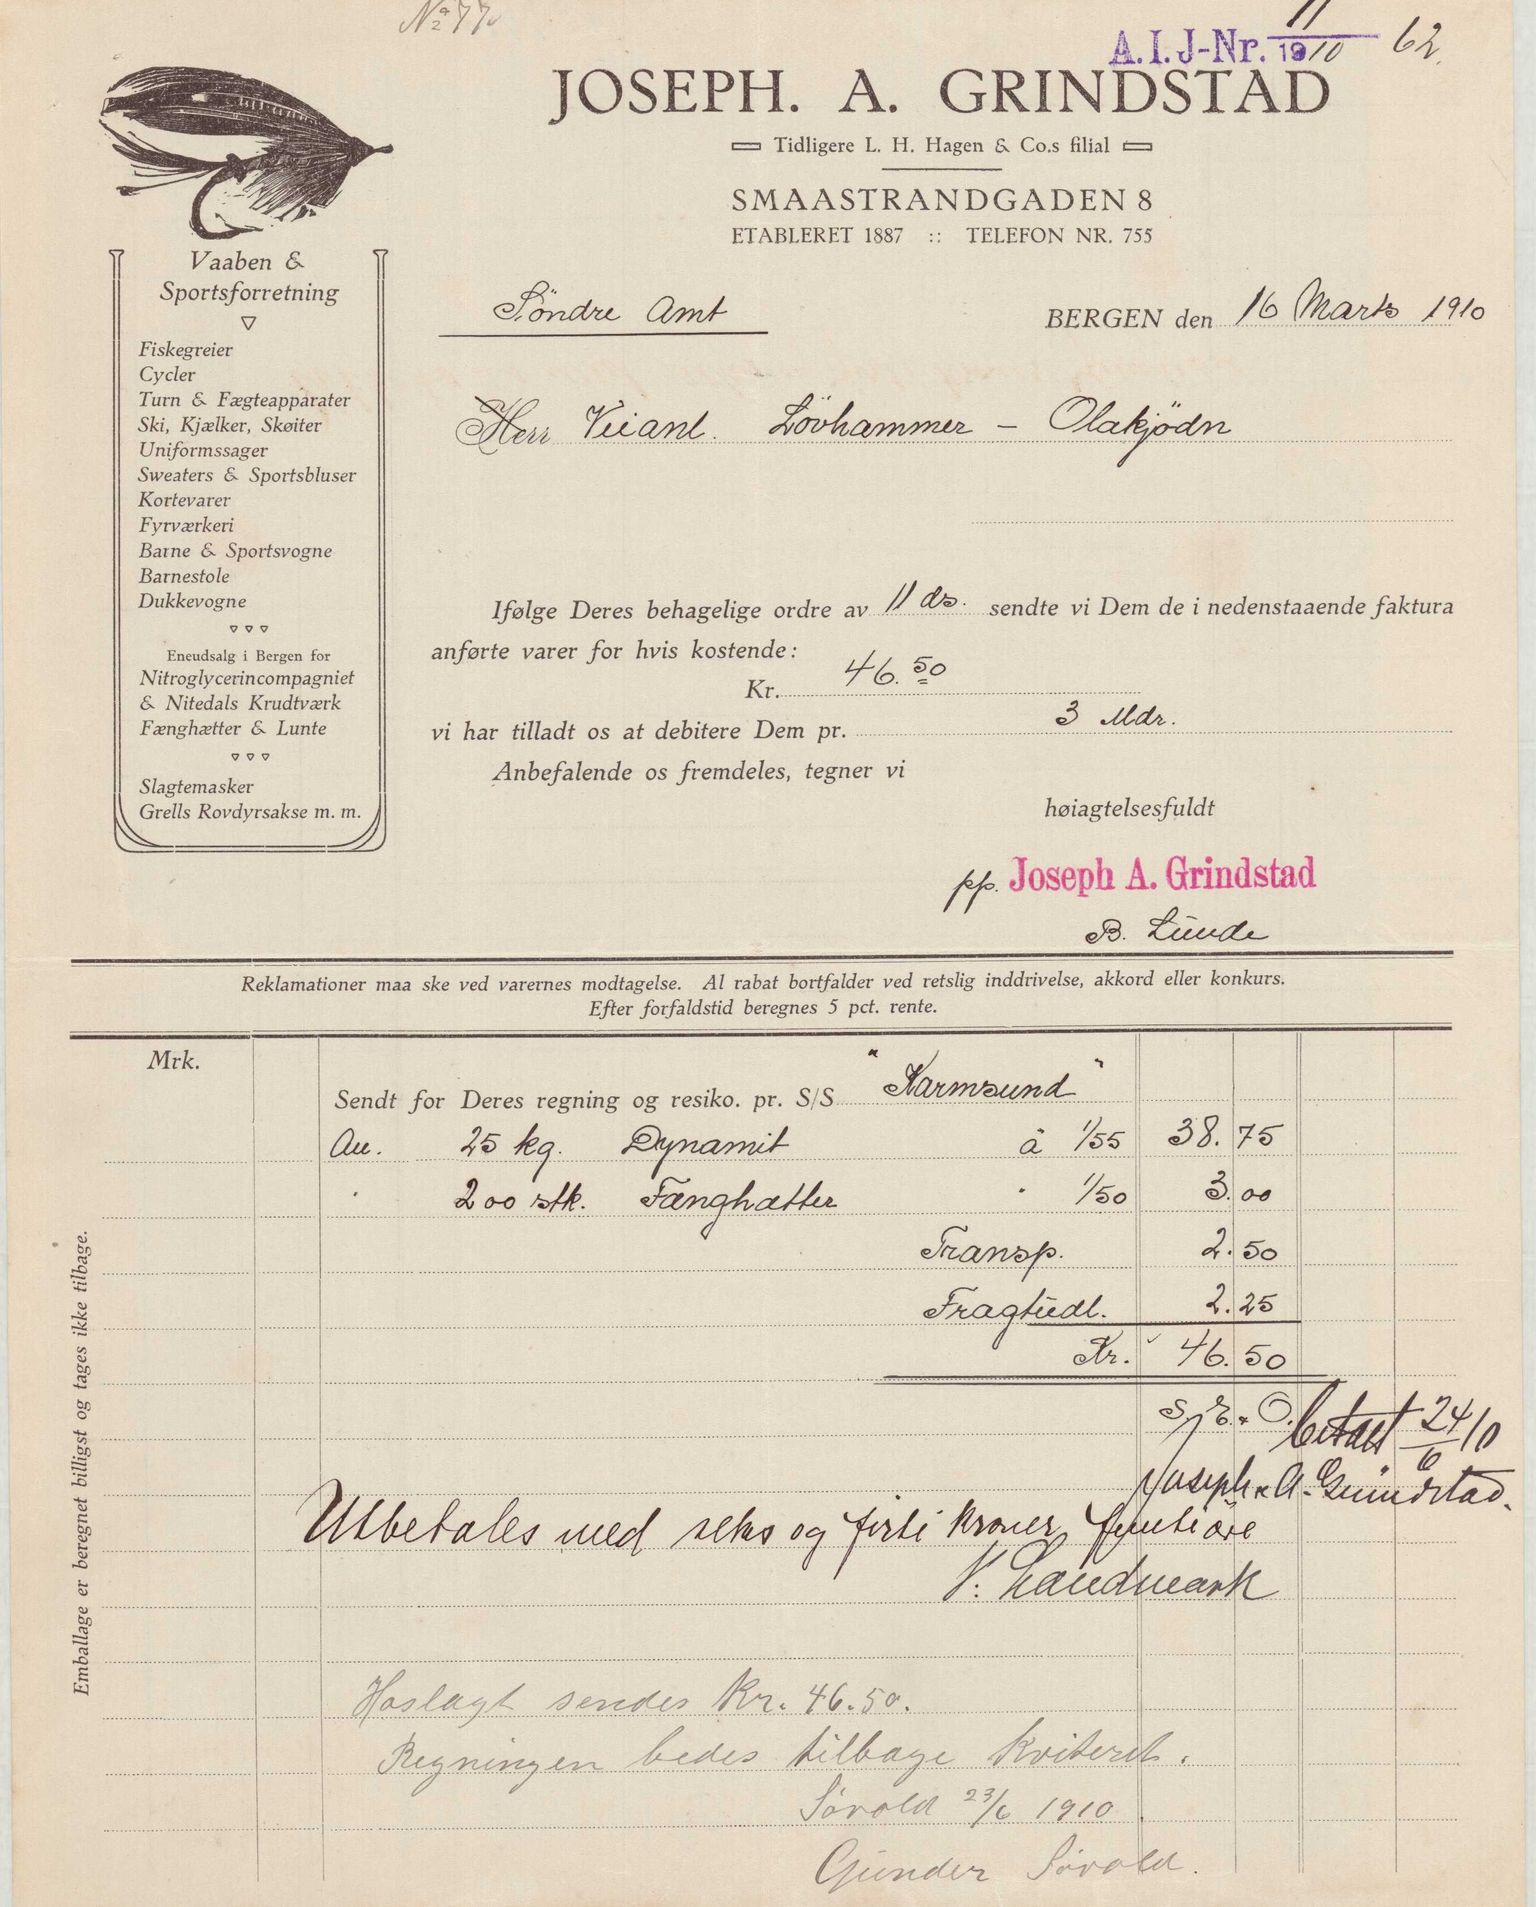 No 77.
A.I.J-Nr. 11/1910 62.
JOSEPH. A. GRINDSTAD
Tidligere L. H. Hagen & Co.s filial
SMAASTRANDGADEN 8
ETABLERET 1887 :: TELEFON NR. 755
Vaaben &
Sportsforretning
Fiskegreier
Cycler
Turn & Fægteapparater
Ski, Kjælker, Skøiter
Uniformssager
Sweaters & Sportsbluser
Kortevarer
Fyrværkeri
Barne & Sportsvogne
Barnestole
Dukkevogne
Eneudsalg i Bergen for
Nitroglycerincompagniet
& Nitedals Krudtværk
Fænghætter & Lunte
Slagtemasker
Grells Rovdyrsakse m. m.
Söndre Amt
BERGEN den 16 Marts 1910
Herr Veianl. Lövhammer – Olakjödn
Ifølge Deres behagelige ordre av 11 ds. sendte vi Dem de i nedenstaaende faktura
anførte varer for hvis kostende:
Kr. 46.50
vi har tilladt os at debitere Dem pr. 3 Mdr.
Anbefalende os fremdeles, tegner vi
høiagtelsesfuldt
pp. Joseph A. Grindstad
B. Lunde
Reklamationer maa ske ved varernes modtagelse. Al rabat bortfalder ved retslig inddrivelse, akkord eller konkurs.
Efter forfaldstid beregnes 5 pct. rente.
Mrk.
Sendt for Deres regning og resiko. pr. S/S "Karmsund"
An. 25 kg. Dynamit à 1/55 38.75
" 200 stk. Fænghætter " 1/50 3.00
Transp. 2.50
Fragtudl. 2.25
Kr. 46.50
S. E. & O.
betalt 24/6 10
Joseph. A. Grindstad.
Utbetales med seks og firti kroner, femti øre
V: Landmark
Hoslagt sendes Kr. 46.50.
Regningen bedes tilbage kviteret.
Sövold 23/6 1910
Gunder Sövold.
Emballage er beregnet billigst og tages ikke tilbage.